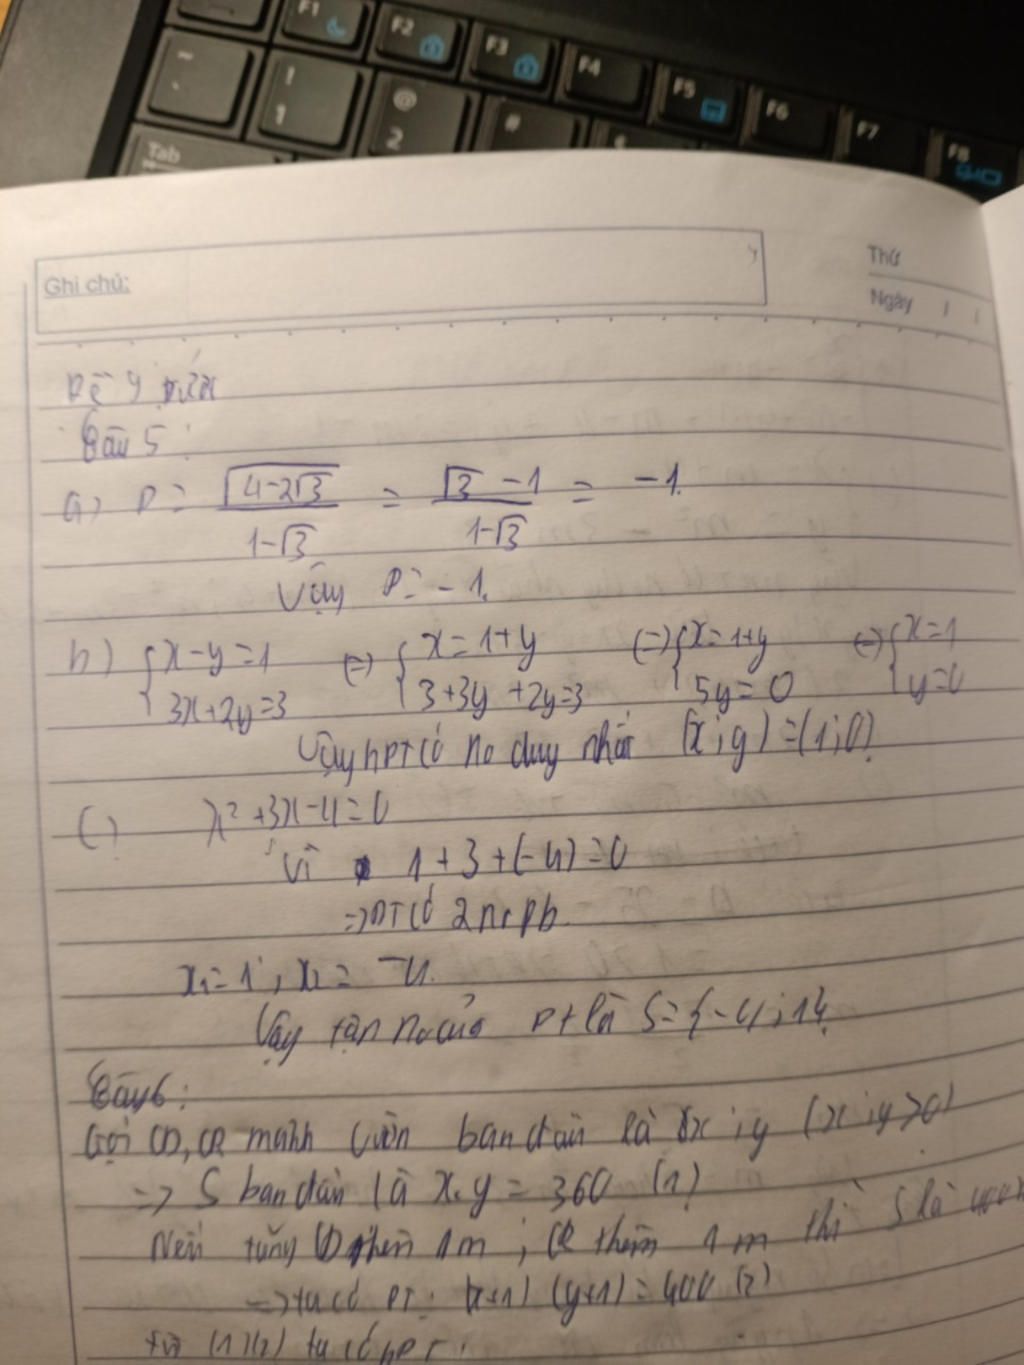 F1
F2
F3
F4
F5
F6
F7
F8
~
!
1
@
2
#
Tab
Ghi chú:
Thứ
Ngày / /
Đề 9
Câu 5:
a) P = √(4-2√3) / (1-√3) = (√3 - 1) / (1-√3) = -1.
Vậy P = -1.
b) { x-y=1 ; 3x+2y=3 (=) { x=1+y ; 3+3y+2y=3 (=) { x=1+y ; 5y=0 (=) { x=1 ; y=0
Vậy hPT có no duy nhất (x;y)=(1;0)
c) x² +3x-4=0
Vì 1+3+(-4)=0
=> PT có 2 no pb
x₁=1; x₂= -4.
Vậy tập no của pt là S={-4;1}.
Câu 6:
Gọi CD, CR mảnh vườn ban đầu là x;y (x;y>0)
=> S ban đầu là x.y = 360 (1)
Nếu tăng CD thêm 1m; CR thêm 1m thì S là 400
=> ta có PT: (x+1)(y+1)=400 (2)
từ (1)(2) ta có hPT: